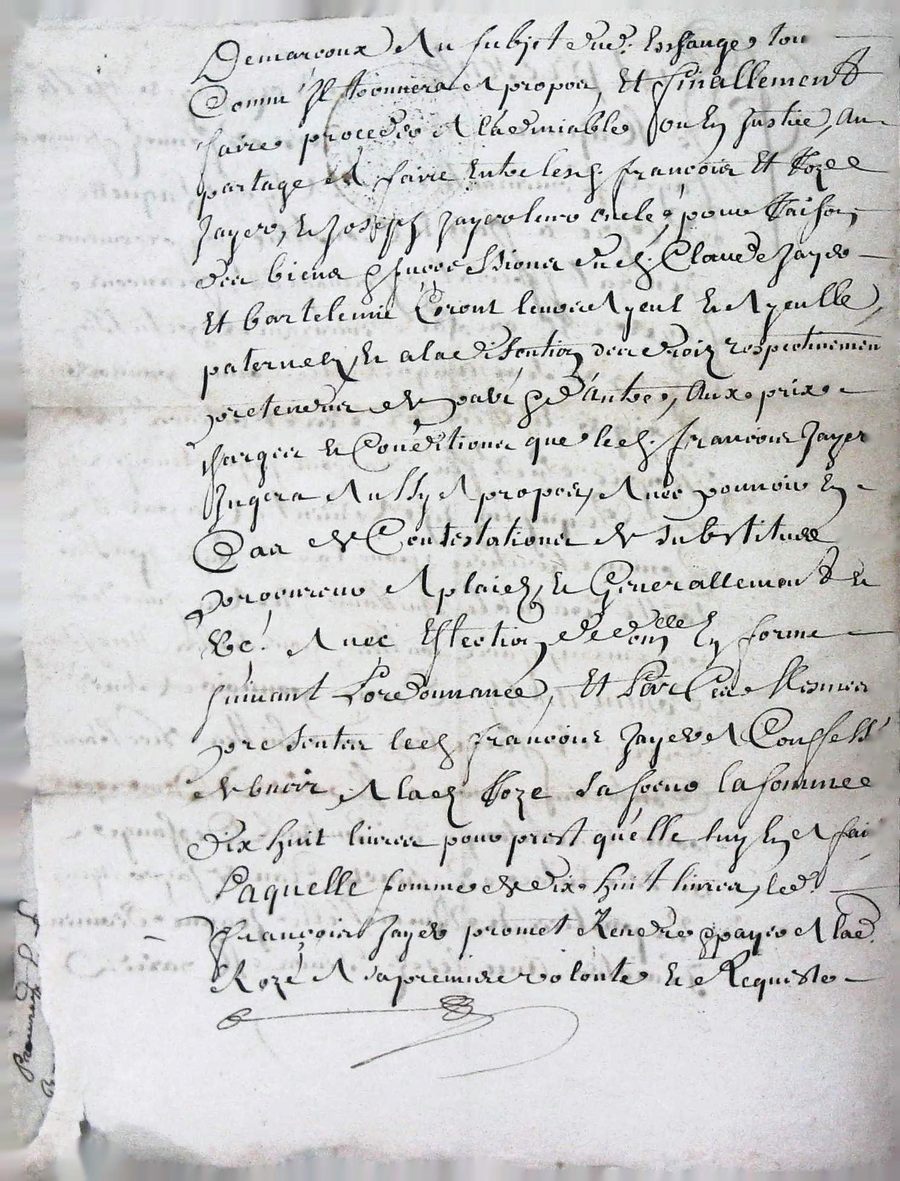 Demarcoux Au subjet dud. Eschange, tou
Comm' Il Treuvera A propos, Et finallement
faire proceder A Lad'miable, ou En Justice, Au
partage A faire Entre lesd. françois Et Roze
Jayer, Et Joseph Jayer leur oncle, pour Raison,
des biens & successions dud. Claude Jayer
Et bartelemie Ceront leurs Ayeul Et Ayeulle
paternels, Et a la distention des droiz respectivemen
pretendus de part & d'autre, Aux prix
charges Et Conditions que led. françois Jayer
Jugera Aussy A propos, Avec pouvoir En
Cas de Contestations de substituer
procureur A plaids, Et Generallement Et
&c. Avec Eslection de domelle En forme
suivant L'ordonnance, Et Par Ces Mesmes
presentes led. françois Jayer A Confessé
debvoir A lad. Roze sa soeur la somme
dix huit livres pour prest qu'elle luy En A fai
Laquelle somme de dix huit livres, led.
françois Jayer promet Rendre & payer A lad.
Roze A sa premiere volonté Et Requiste